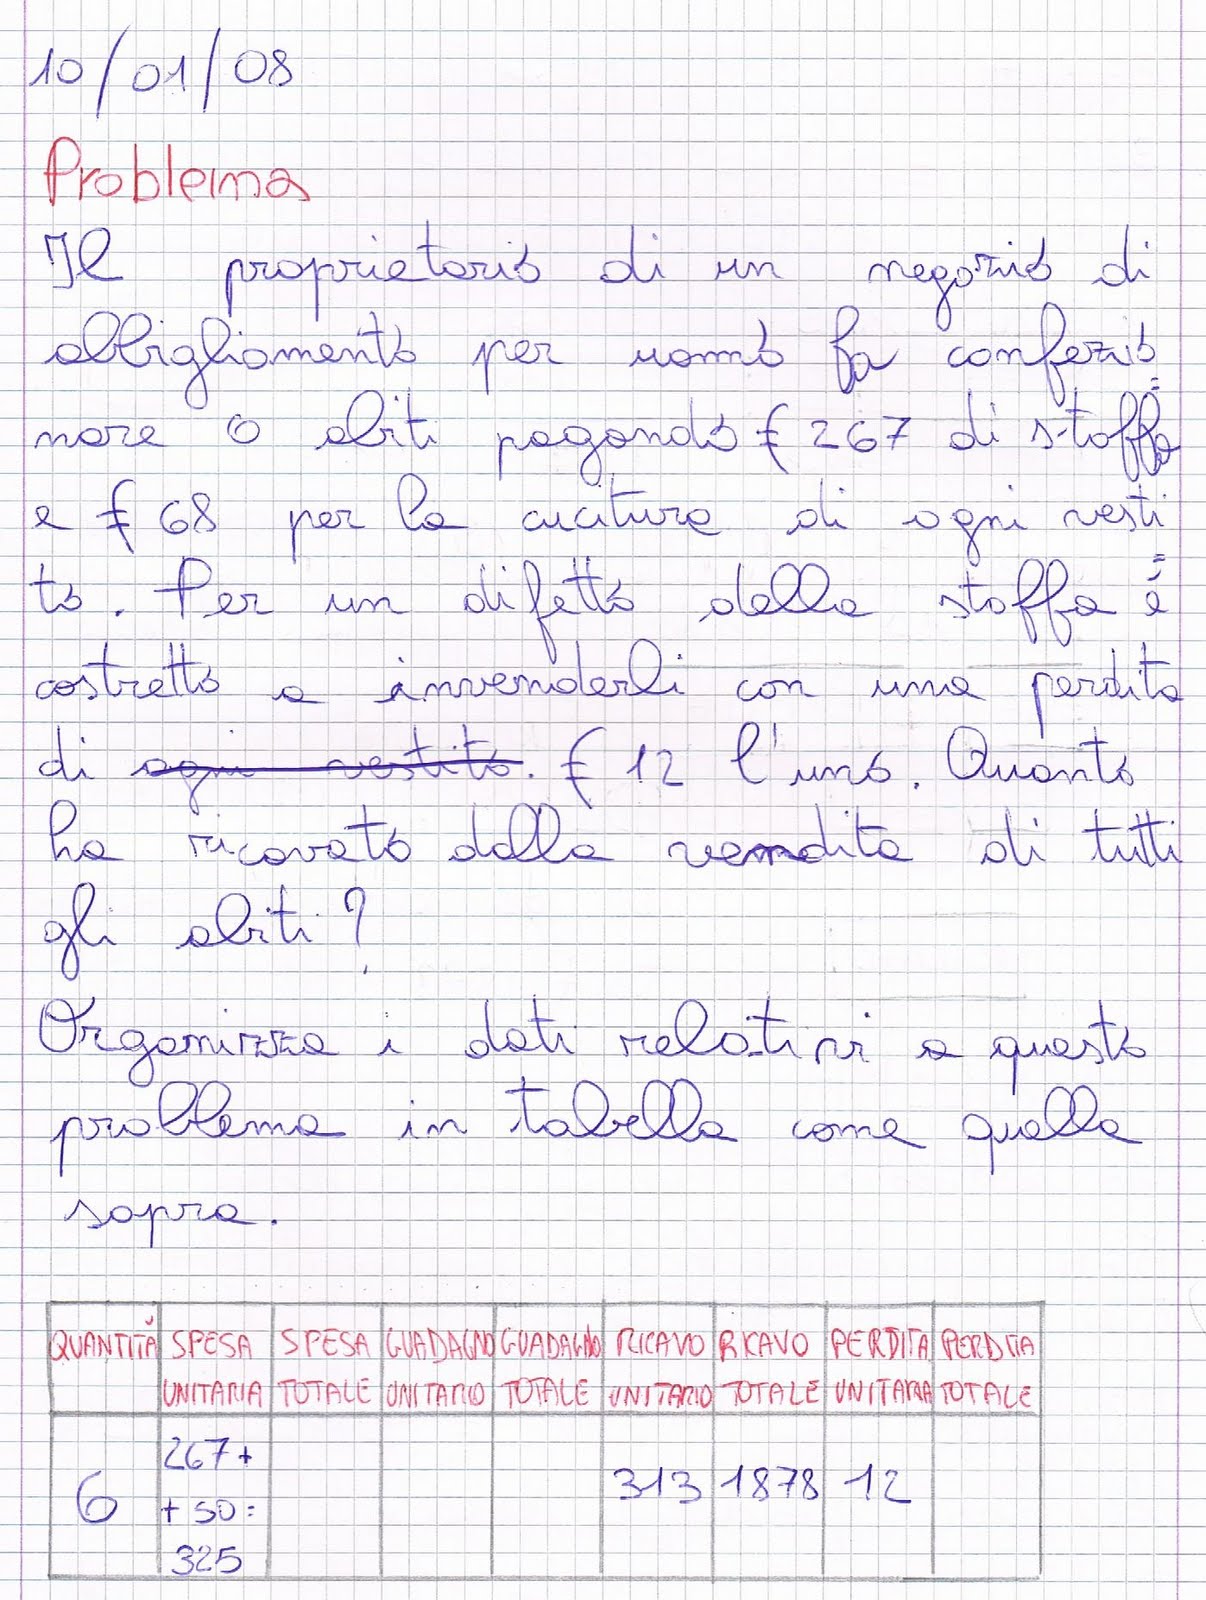 10/01/08
Problema
Il proprietario di un negozio di
abbigliamento per uomo fa confezio=
nare 6 abiti pagando € 267 di stoffa
e € 68 per la cucitura di ogni vesti=
to. Per un difetto della stoffa é
costretto a invenderli con una perdita
di ogni vestito. € 12 l'uno. Quanto
ha ricavato dalla vendita di tutti
gli abiti?
Organizza i dati relativi a questo
problema in tabella come quella
sopra.
QUANTITÀ SPESA UNITARIA SPESA TOTALE GUADAGNO UNITARIO GUADAGNO TOTALE RICAVO UNITARIO RICAVO TOTALE PERDITA UNITARIA PERDITA TOTALE
6 267+ +50= 325 313 1878 12